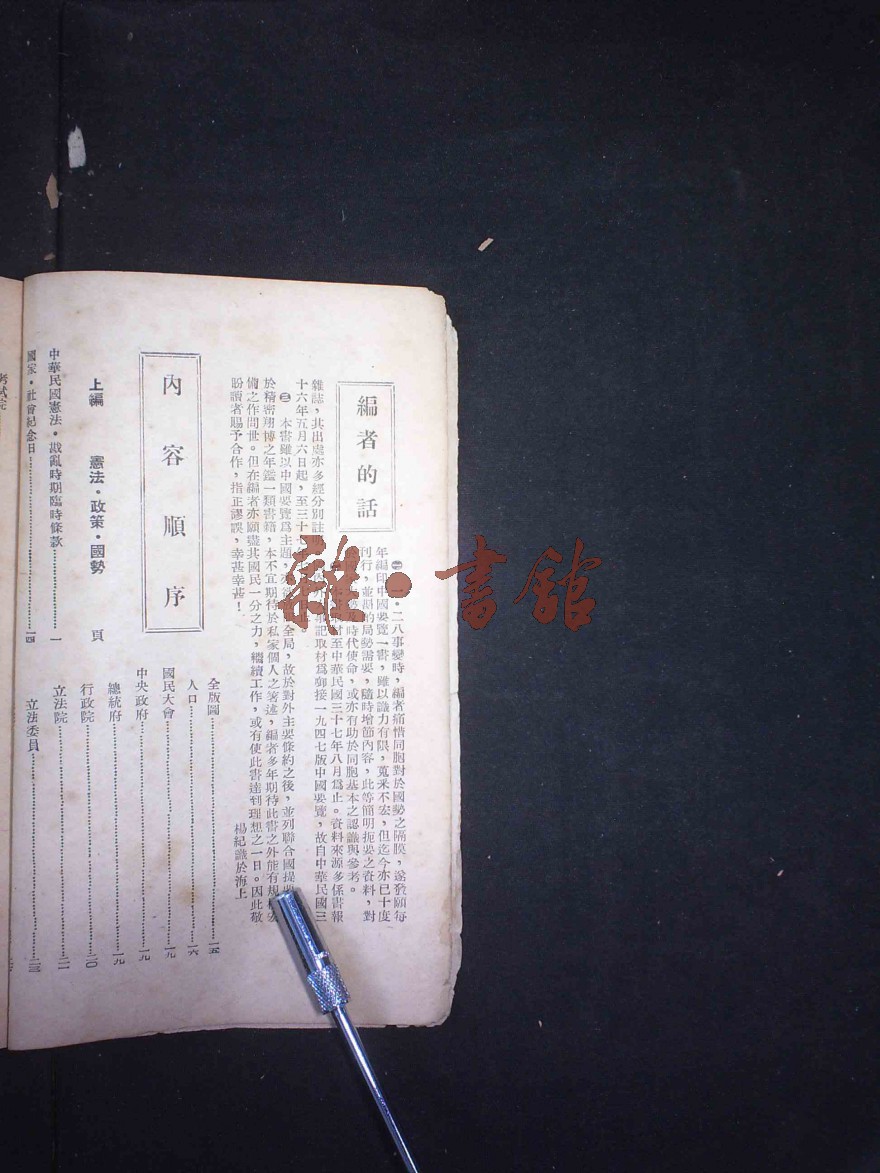 編者的話
㊀ 一・二八事變時,編者痛惜同胞對於國勢之隔膜,遂發願每
年編印中國要覽一書,雖以識力有限,蒐釆不宏,但迄今亦已十度
刊行,並斟酌局勢需要,隨時增節內容,此等簡明扼要之資料,對
時代使命,或亦有助於同胞基本之認識與參考。
本書取材至中華民國三十七年八月爲止。資料來源多係書報
雜誌,其出處亦多經分別註明 記取材爲銜接一九四七版中國要覽,故自中華民國三
十六年五月六日起,至三十七年
㊂ 本書雖以中國要覽爲主題, 全局,故於對外主要條約之後,並列聯合國提要
於精密翔博之年鑑一類書籍,本不宜期待於私家個人之著述,編者多年期待此書之外能有規模宏
備之作問世。但在編者亦願盡其國民一分之力,繼續工作,或有使此書達到理想之一日。因此敬
盼讀者賜予合作,指正謬誤,幸甚幸甚!
楊紀識於海上
內容順序
上編 憲法・政策・國勢 頁
中華民國憲法・戡亂時期臨時條款………一
國家・社會紀念日………一四
全版圖………一五
人口………一六
國民大會………一九
中央政府………一九
總統府………一九
行政院………二〇
立法院………二一
立法委員………二三
考試院
雜・書館